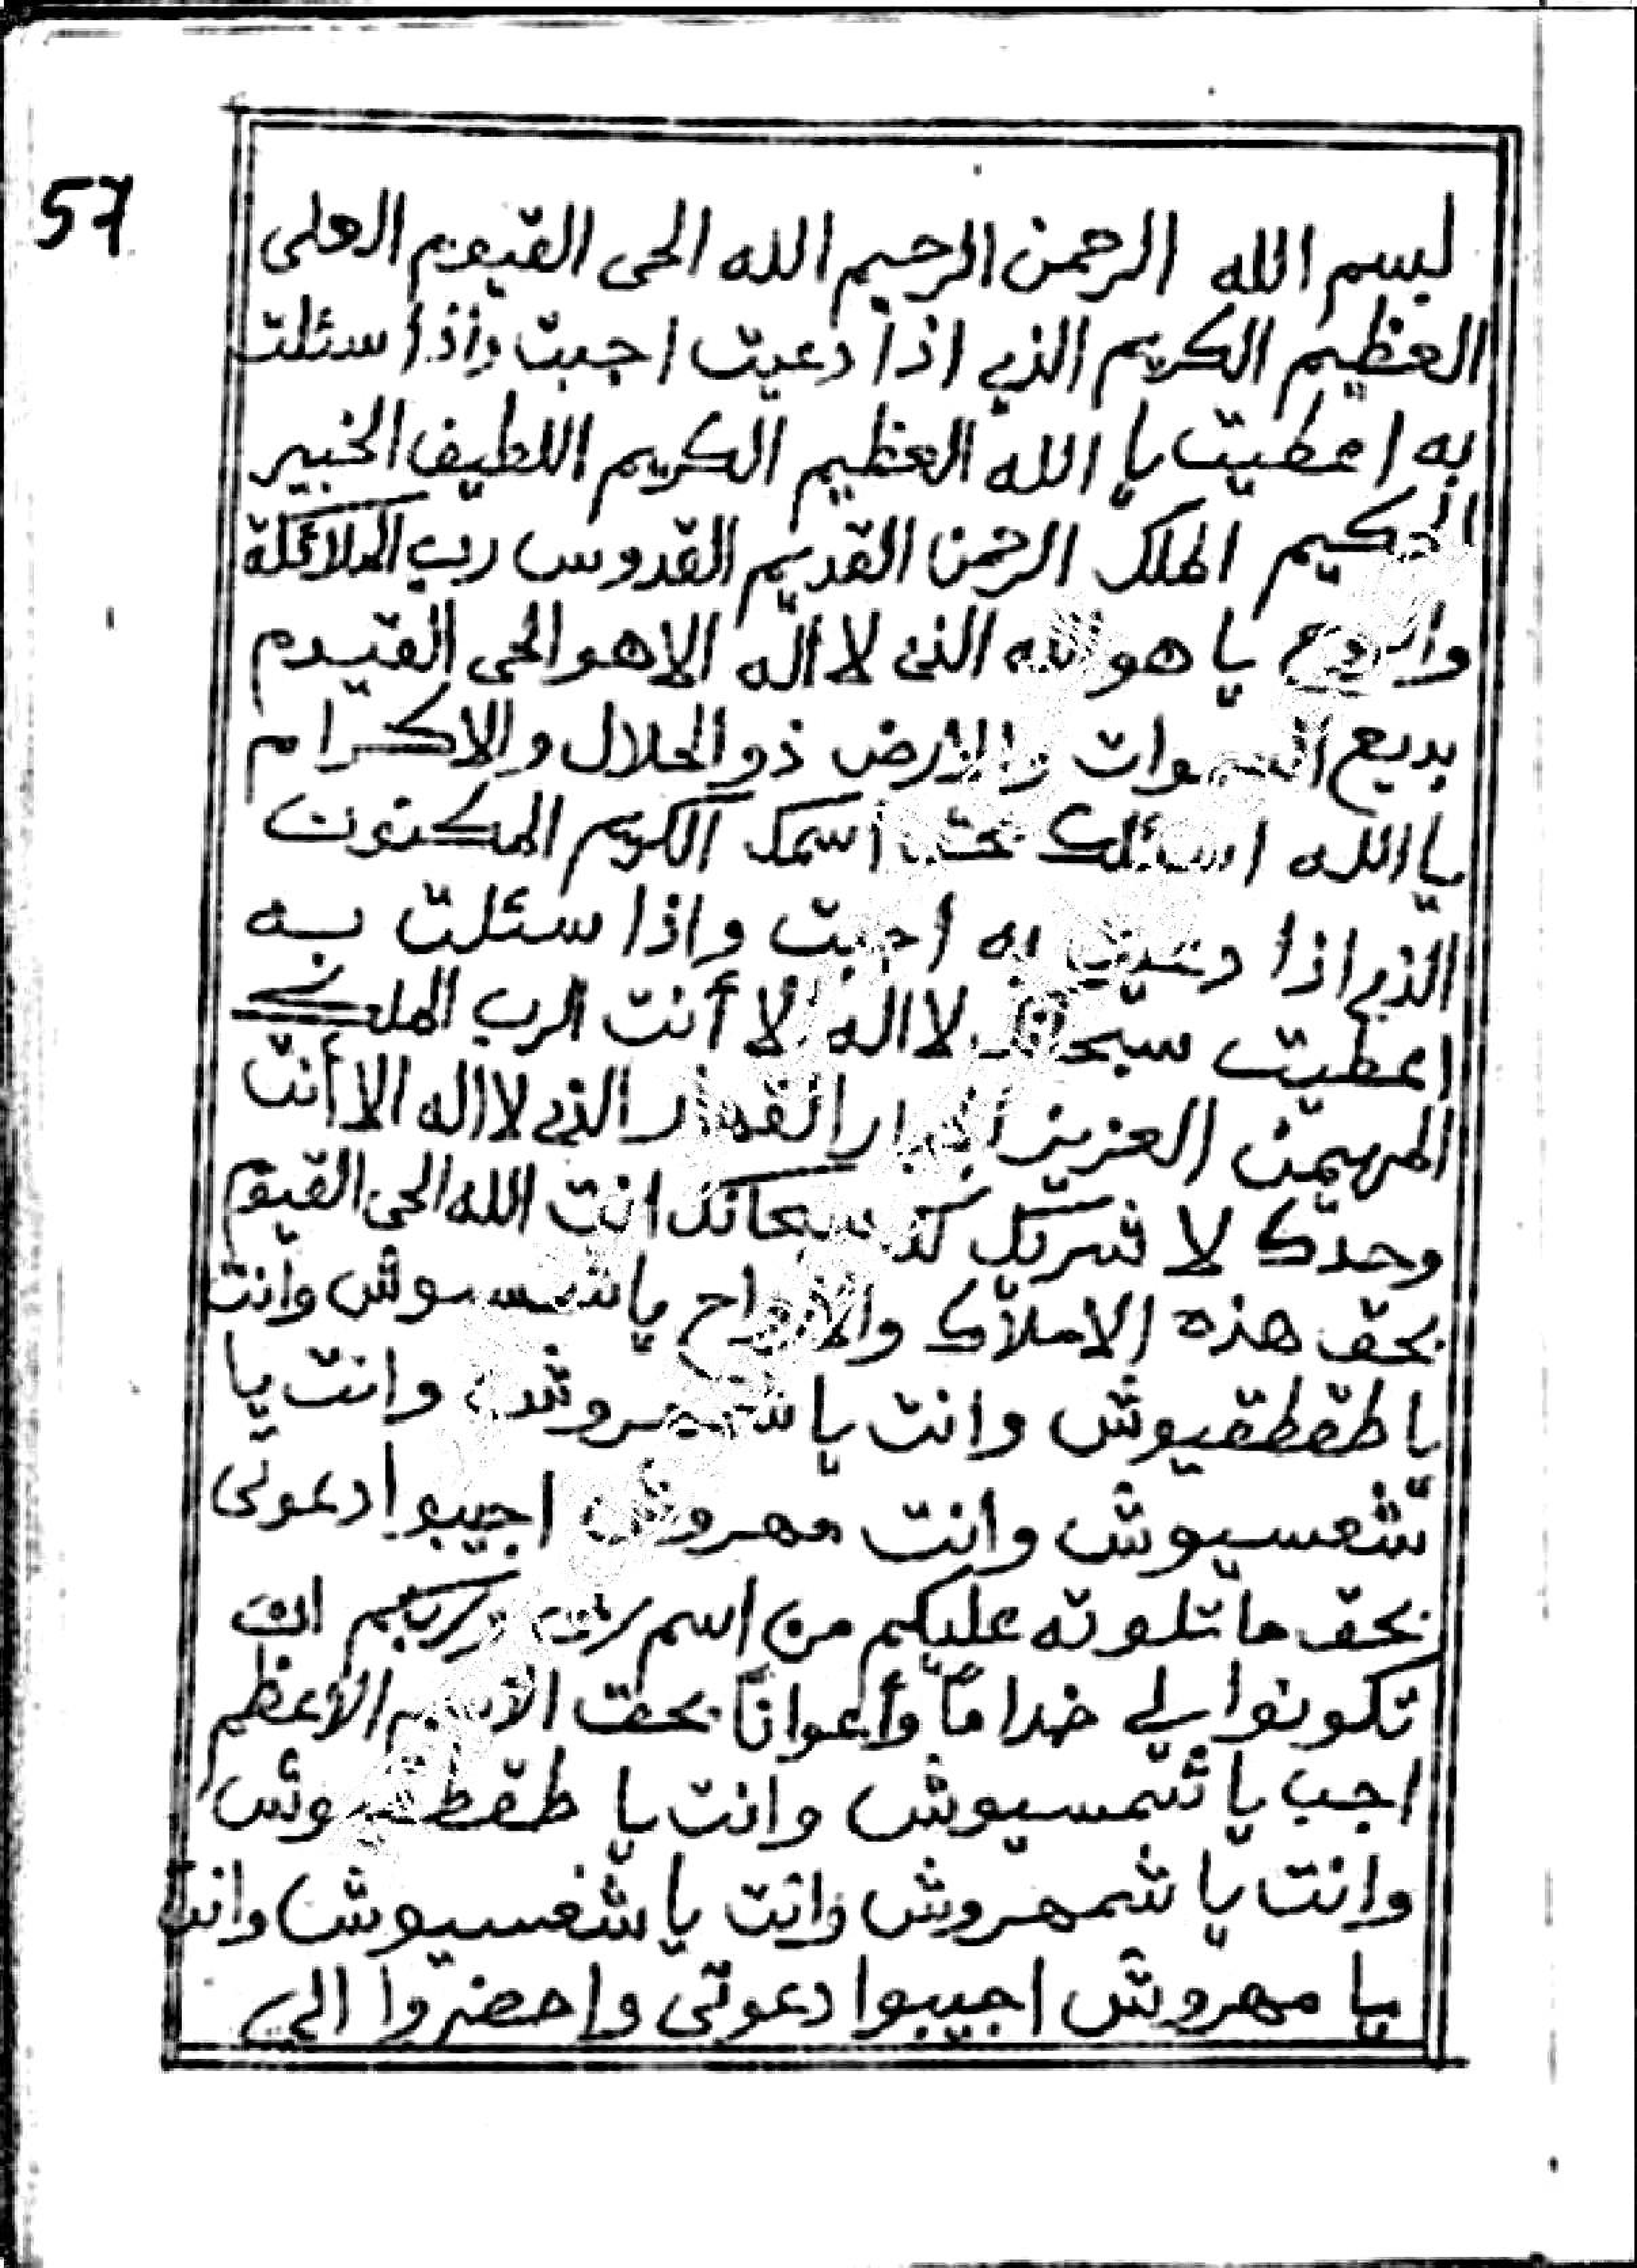 57
بسم الله الرحمن الرحيم الله الحى القيوم العلى
العظيم الكريم الذي اذا دعيت اجبت واذا سئلت
به اعطيت يا الله العظيم الكريم اللطيف الخبير
الحكيم الملك الرحمن القديم القدوس رب الملائكة
والروح يا هو الله الذى لا اله الا هو الحى القيوم
بديع السموات والارض ذو الجلال والاكرام
يا الله اسئلك بحق اسمك الكريم المكنون
الذي اذا دعيت به اجبت واذا سئلت به
اعطيت سبحانك لا اله الا أنت الرب الملك
المهيمن العزيز الجبار القهار الذي لا اله الا أنت
وحدك لا شريك لك سبحانك انت الله الحى القيوم
بحق هذه الاملاك والارواح يا شمسيوش وانت
يا طقطقيوش وانت يا شمهروش وانت يا
شغسيوش وانت مهروش اجيبوا دعوتى
بحق ما تلوته عليكم من اسم ربى وربكم ان
تكونوا لي خداماً وأعواناً بحق الاسم الأعظم
اجب يا شمسيوش وانت يا طقطقيوش
وانت يا شمهروش وانت يا شغسيوش وانت
يا مهروش اجيبوا دعوتى واحضروا الي